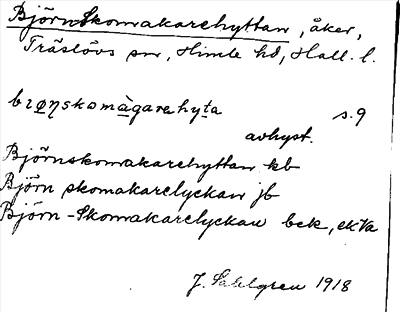 BjörnSkomakarehyttan, åker,
Träslövs sn, Himle hd, Hall. l.
brøn̥skomàgarehyta s. 9
avhyst.
Björnskomakarehyttan kb
Björn skomakarelyckan jb
Björn-Skomakarelyckan bek, ekVa
J. Sahlgren 1918